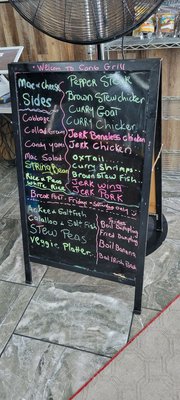 Welcome to Carib Grill
Mac n Cheese
Sides
Cabbage
Collard Green
Candy yams
Mac Salad
String Bean
Rice n Peas
White Rice
Pepper Steak
Brown Stew chicken
Curry Goat
Curry Chicken
Jerk Boneless chicken
Jerk Chicken
Oxtail
Curry Shrimps
Brown Stew Fish
Jerk Wing
Jerk Pork
Breakfast - Friday - Saturday Only
Ackee & Saltfish
Callaloo & Salt Fish
Stew Peas
Veggie Platter
Sides
Boil Dumpling
Fried Dumpling
Boil Banana